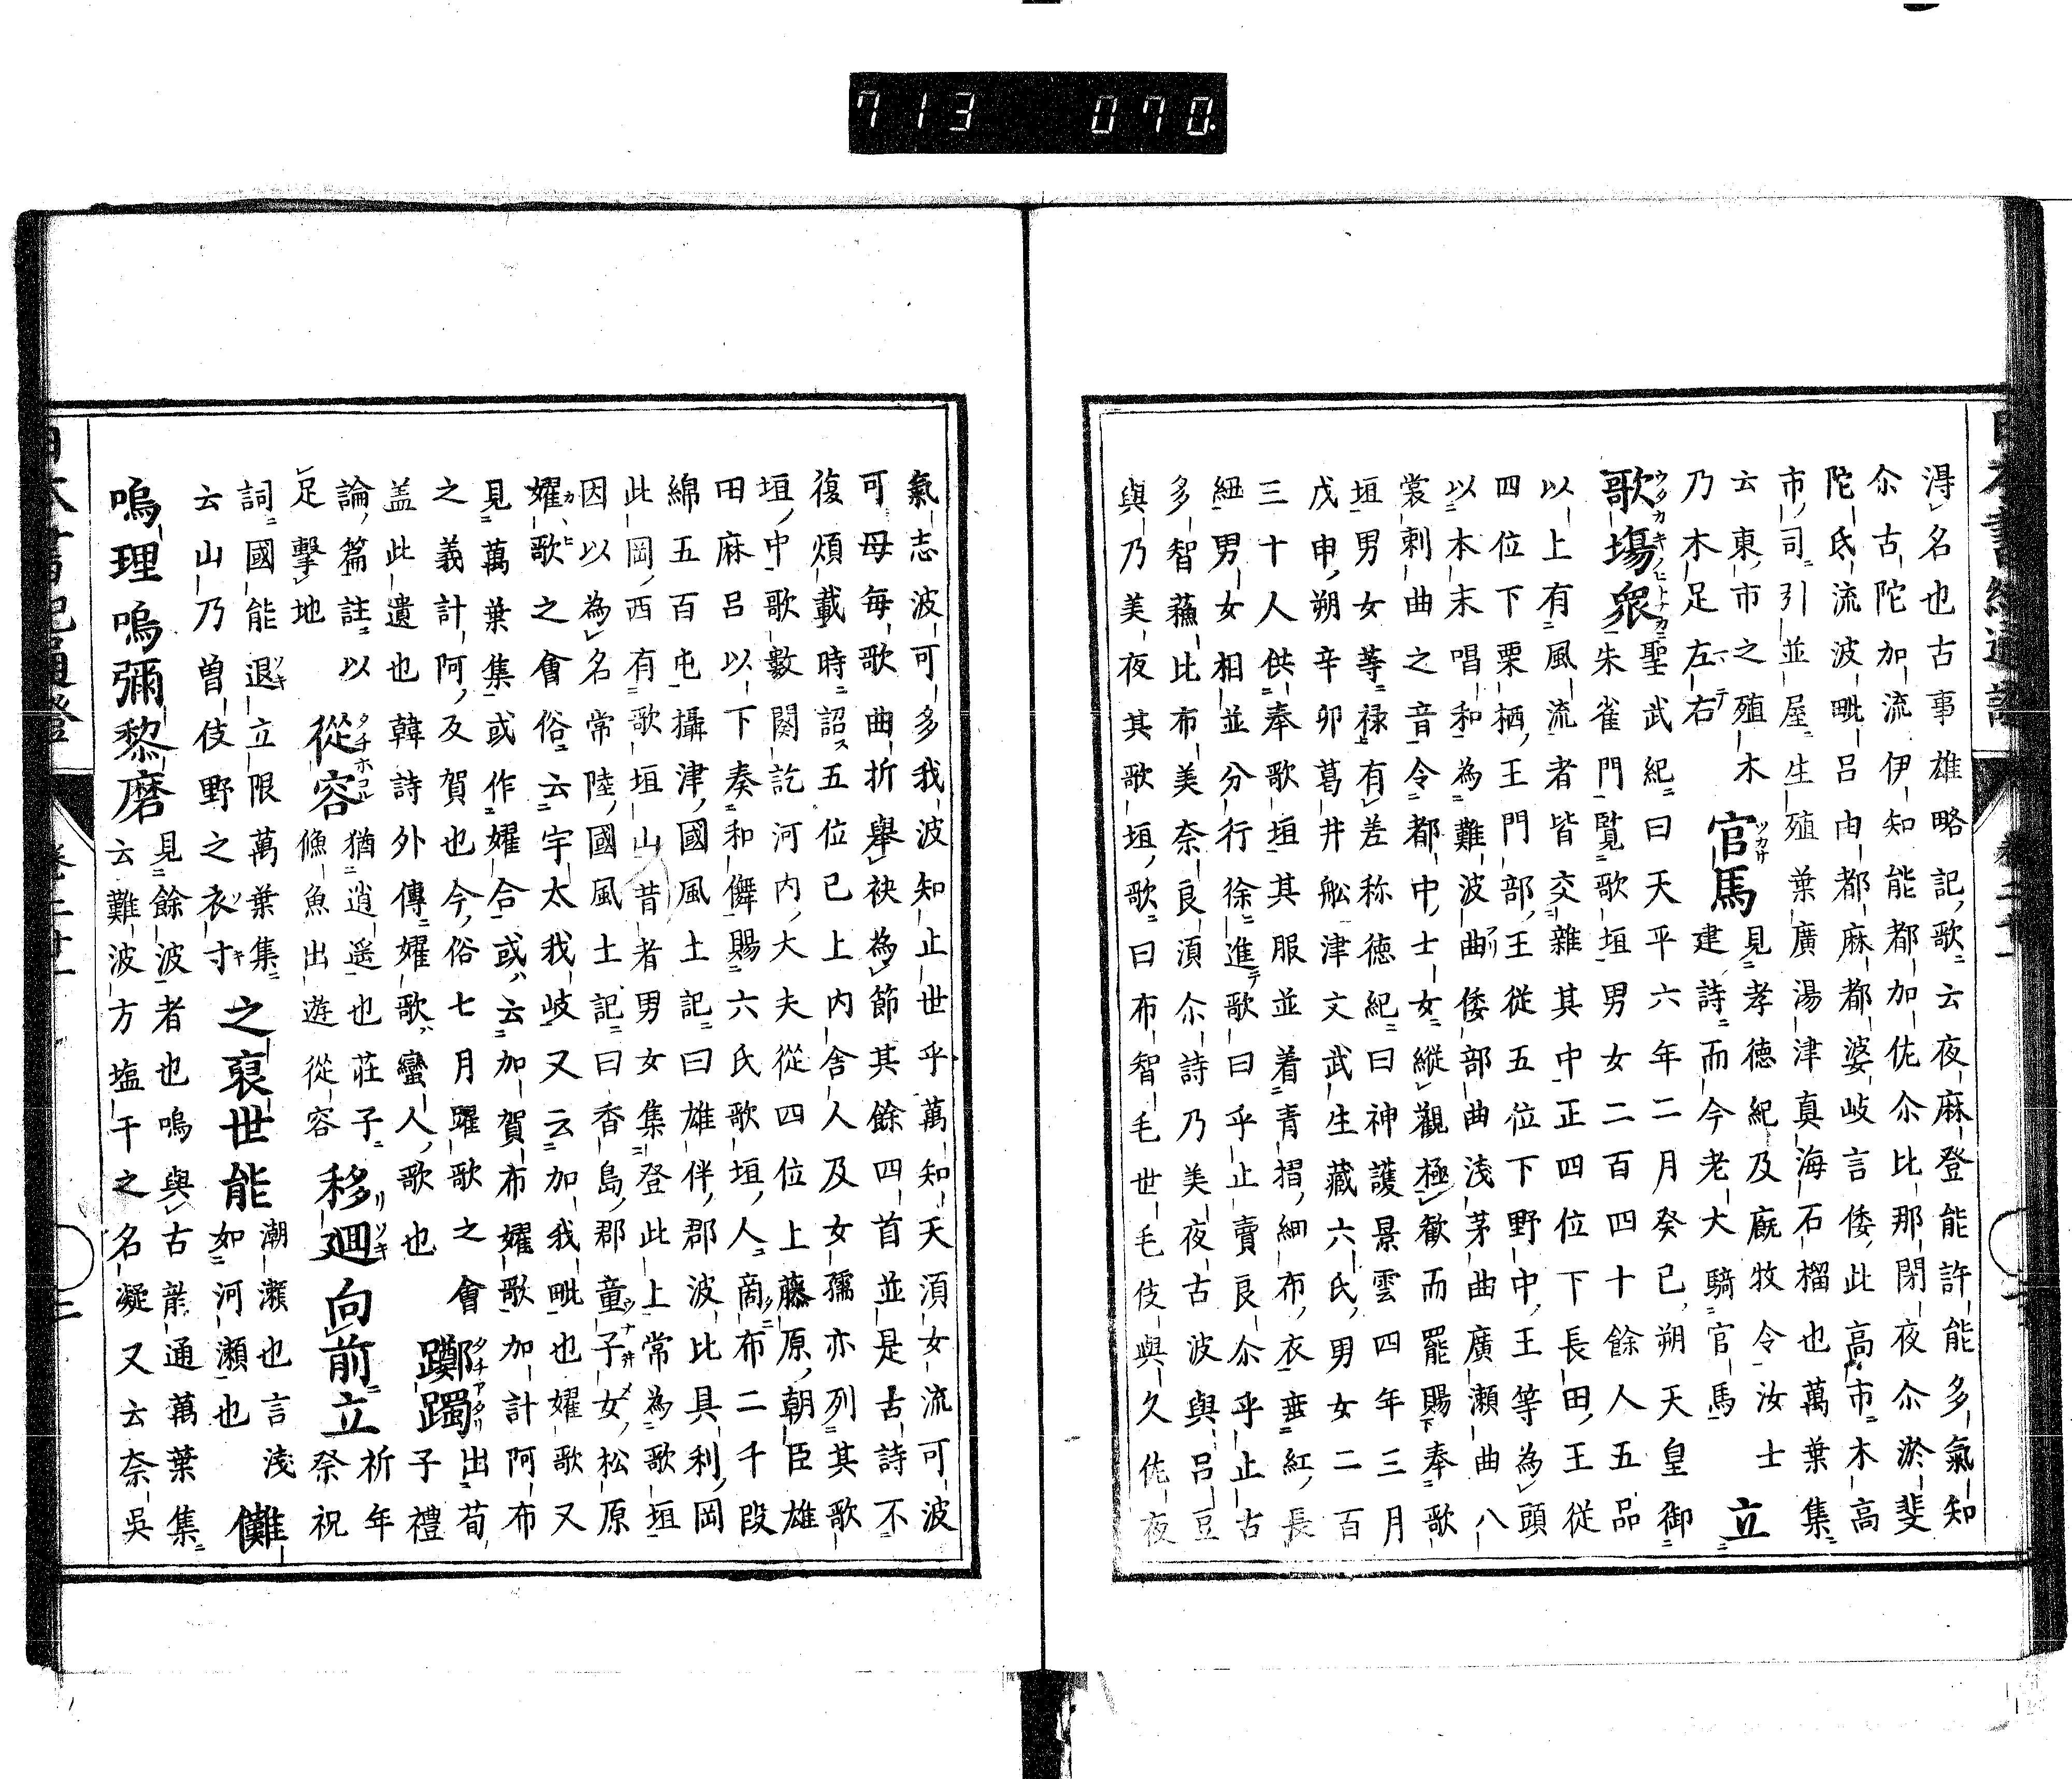 713 070.
淂名也古事雄略記歌云夜麻登能許能多氣知
尒古陀加流伊知能都加佐尒比那閇夜尒淤斐
陀氐流波毗呂由都麻都婆岐言倭此高市木高
市司引並屋生殖葉廣湯津真海石榴也萬葉集
云東市之殖木
乃木足左右
官馬
見孝徳紀及廐牧令汝士
建詩而今老大騎官馬
立
歌場衆
聖武紀曰天平六年二月癸巳朔天皇御
朱雀門覧歌垣男女二百四十餘人五品
以上有風流者皆交雜其中正四位下長田王従
四位下栗栖王門部王従五位下野中王等為頭
以本末唱和為難波曲倭部曲浅茅曲廣瀬曲八
裳刺曲之音令都中士女縦觀極歡而罷賜奉歌
垣男女等禄有差称徳紀曰神護景雲四年三月
戊申朔辛卯葛井舩津文武生藏六氏男女二百
三十人供奉歌垣其服並着青摺細布衣垂紅長
紐男女相並分行徐進歌曰乎止賣良尒乎止古
多智蘓比布美奈良湏尒詩乃美夜古波與呂豆
與乃美夜其歌垣歌曰布智毛世毛伎與久佐夜
氣志波可多我波知止世乎萬知天湏女流可波
可母毎歌曲折舉袂為節其餘四首並是古詩不
復煩載時詔五位已上内舎人及女孺亦列其歌
垣中歌數闋訖河内大夫従四位上藤原朝臣雄
田麻呂以下奏和儛賜六氏歌垣人商布二千段
綿五百屯攝津國風土記曰雄伴郡波比具利岡
此岡西有歌垣山昔者男女集登此上常為歌垣
因以為名常陸國風土記曰香島郡童子女松原
嬥歌之會俗云宇太我岐又云加我毗也嬥歌又
見萬葉集或作嬥合或云加賀布嬥歌加計阿布
之義計阿反賀也今俗七月躍歌之會
盖此遺也韓詩外傳嬥歌蠻人歌也
躑躅
出荀
子禮
論篇註以
足擊地
從容
猶逍遥也荘子
儵魚出遊從容
移廽向前立
祈年
祭祝
詞國能退立限萬葉集
云山乃曽伎野之衣寸
之裒世能
潮瀬也言浅
如河瀬也
儺
嗚理嗚彌黎磨
見餘波者也嗚與古䉶通萬葉集
云難波方塩干之名凝又云奈吳